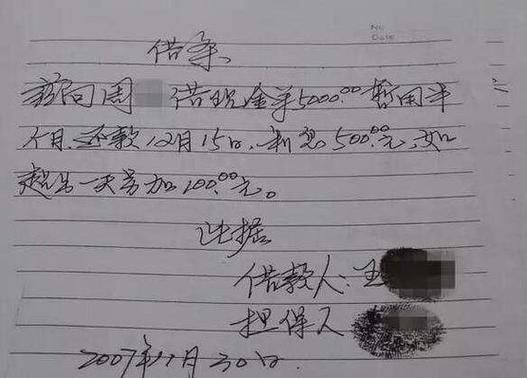 No
Date
借条
兹向周 借现金￥5000.00 暂用半
个月,还款12月15日,利息500.00元,如
超出一天另加100.00元。
此据
借款人:王
担保人
2007年11月30日.